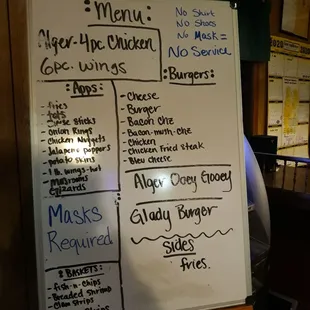 : Menu :
No Shirt
No Shoes
No Mask =
No Service
Alger - 4pc Chicken
6pc. wings
: Apps :
- fries
- tots
- Onion Rings
- Chicken Nuggets
- Jalapeno poppers
- potato skins
- 1 lb. wings-hot
- Mushrooms
- Gizzards
Masks
Required
: BASKETS :
- fish-n-chips
- Breaded shrimp
- Clam Strips
: Burgers :
- Cheese
- Burger
- Bacon Chz
- Bacon-mush-chz
- Chicken
- Chicken Fried steak
- Bleu cheese
Alger Ooey Gooey
Glady Burger
Sides
fries.